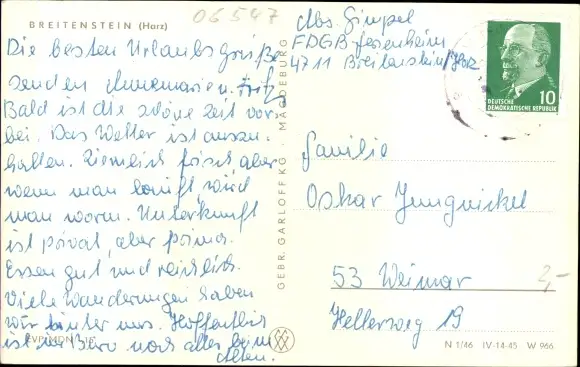 BREITENSTEIN (Harz)
06547
Die besten Urlaubsgrüße
senden Annemarie u. Fritz
Bald ist die schöne Zeit vor-
bei. Das Wetter ist auszu-
halten. Ziemlich frisch aber
wenn man läuft wird
man warm. Unterkunft
ist privat, aber prima.
Essen gut und reichlich.
Viele Wanderungen haben
wir hinter uns. Hoffentlich
ist im Büro noch alles beim
Alten.
EVP MDN
GEBR. GARLOFF KG · MAGDEBURG
Abs. Gimpel
FDGB-Ferienheim
4711 Breitenstein/Harz
10
DEUTSCHE
DEMOKRATISCHE REPUBLIK
Familie
Oskar Jungnickel
53 Weimar
Hellerweg 19
2,-
N 1/46 IV-14-45 W 966